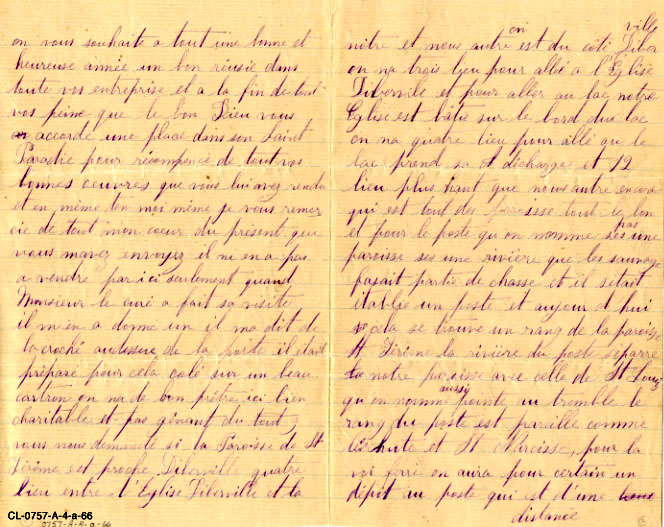 on vous souhaite a tout une bonne et
heureuse année un bon réusie dans
toute vos entreprise et a la fin de tout
vos peine que le bon Dieu vous
accorde une place dans son Saint
Paradie pour récompencé de tout vos
bonnes oeuvres que vous lui avez rendu
et en même ten moi même je vous remer
cie de tout mon coeur du présent que
vous mavez envoyez il ni en a pas
a vendre par ici seulement quand
Monsieur le curé a fait sa visite
il m'en a donne un il ma dit de
la croché au dessus de la porte il était
préparé pour cela colé sur un beau
cartron on na de bon prêtre ici bien
charitable et pas gênant du tout
vous nous demandté si la Paroisse de St
Jérôme est proche Diberville quatre
lieu entre l'Eglise Diberville et la
nôtre et nous autre on est du côté Diber
ville
on na trois lieu pour allé a l'Eglise
Diberville et pour aller au lac notre
Eglise est bâtie sur le bord du lac
on na quatre lieu pour allé ou le
lac prend sa décharge et 12
lieu plus haut que nous autre encore
qui est tout des parroisse tout le lon
et pour le poste qu on nomme ses pas une
paroisse ses une rivière que les sauvage
fasait partie de chasse et il sétait
établie un poste et aujour d hui
cela se trouve un rang de la paroisse
St Jérôme la rivière du poste séparre
notre paroisse avec celle de St Louis
qu on nomme aussie pointe au tremble le
rang du poste est pareille comme
et St Narcisse, pour la
voi forré on aura pour certain un
dépit au poste qui est d'une
distance
CL-0757-A-4-a-66
0757-A-4-a-66